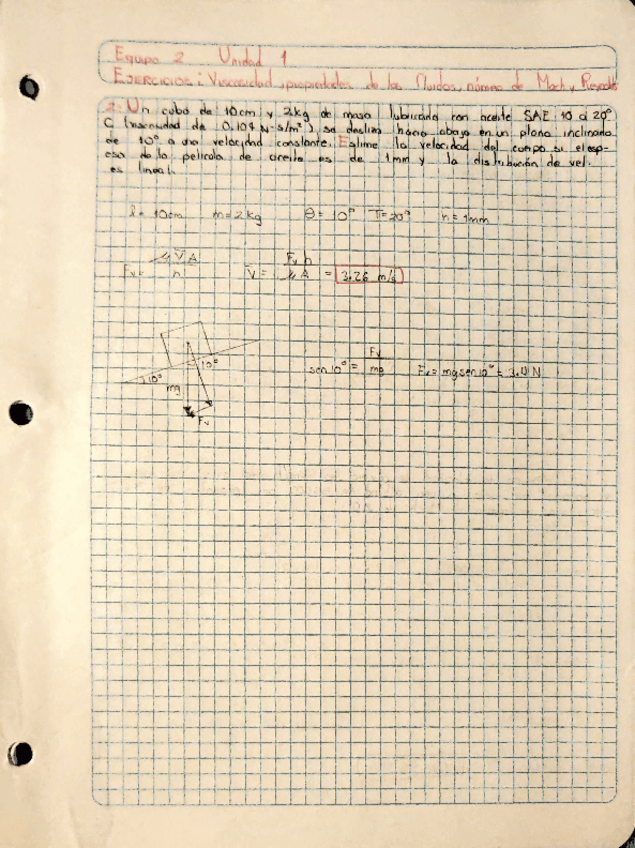 Equipo 2 Unidad 1
EJERCICIOS: Viscosidad, propiedades de los fluidos, número de Mach y Reynolds
2. Un cubo de 10cm y 2kg de masa lubricada con aceite SAE 10 a 20°
C (viscosidad de 0.104 N·s/m²), se desliza hacia abajo en un plano inclinado
de 10° a una velocidad constante. Estime la velocidad del cuerpo si el esp-
esor de la película de aceite es de 1mm y la distribución de vel.
es lineal.
l= 10cm m=2kg θ=10° T=20° h=1mm
Fv= μ V A / h V= Fv h / μ A = 3.28 m/s
10°
10°
mg
Fv
sen10°= Fv / mg Fv= mgsen10°= 3.41 N